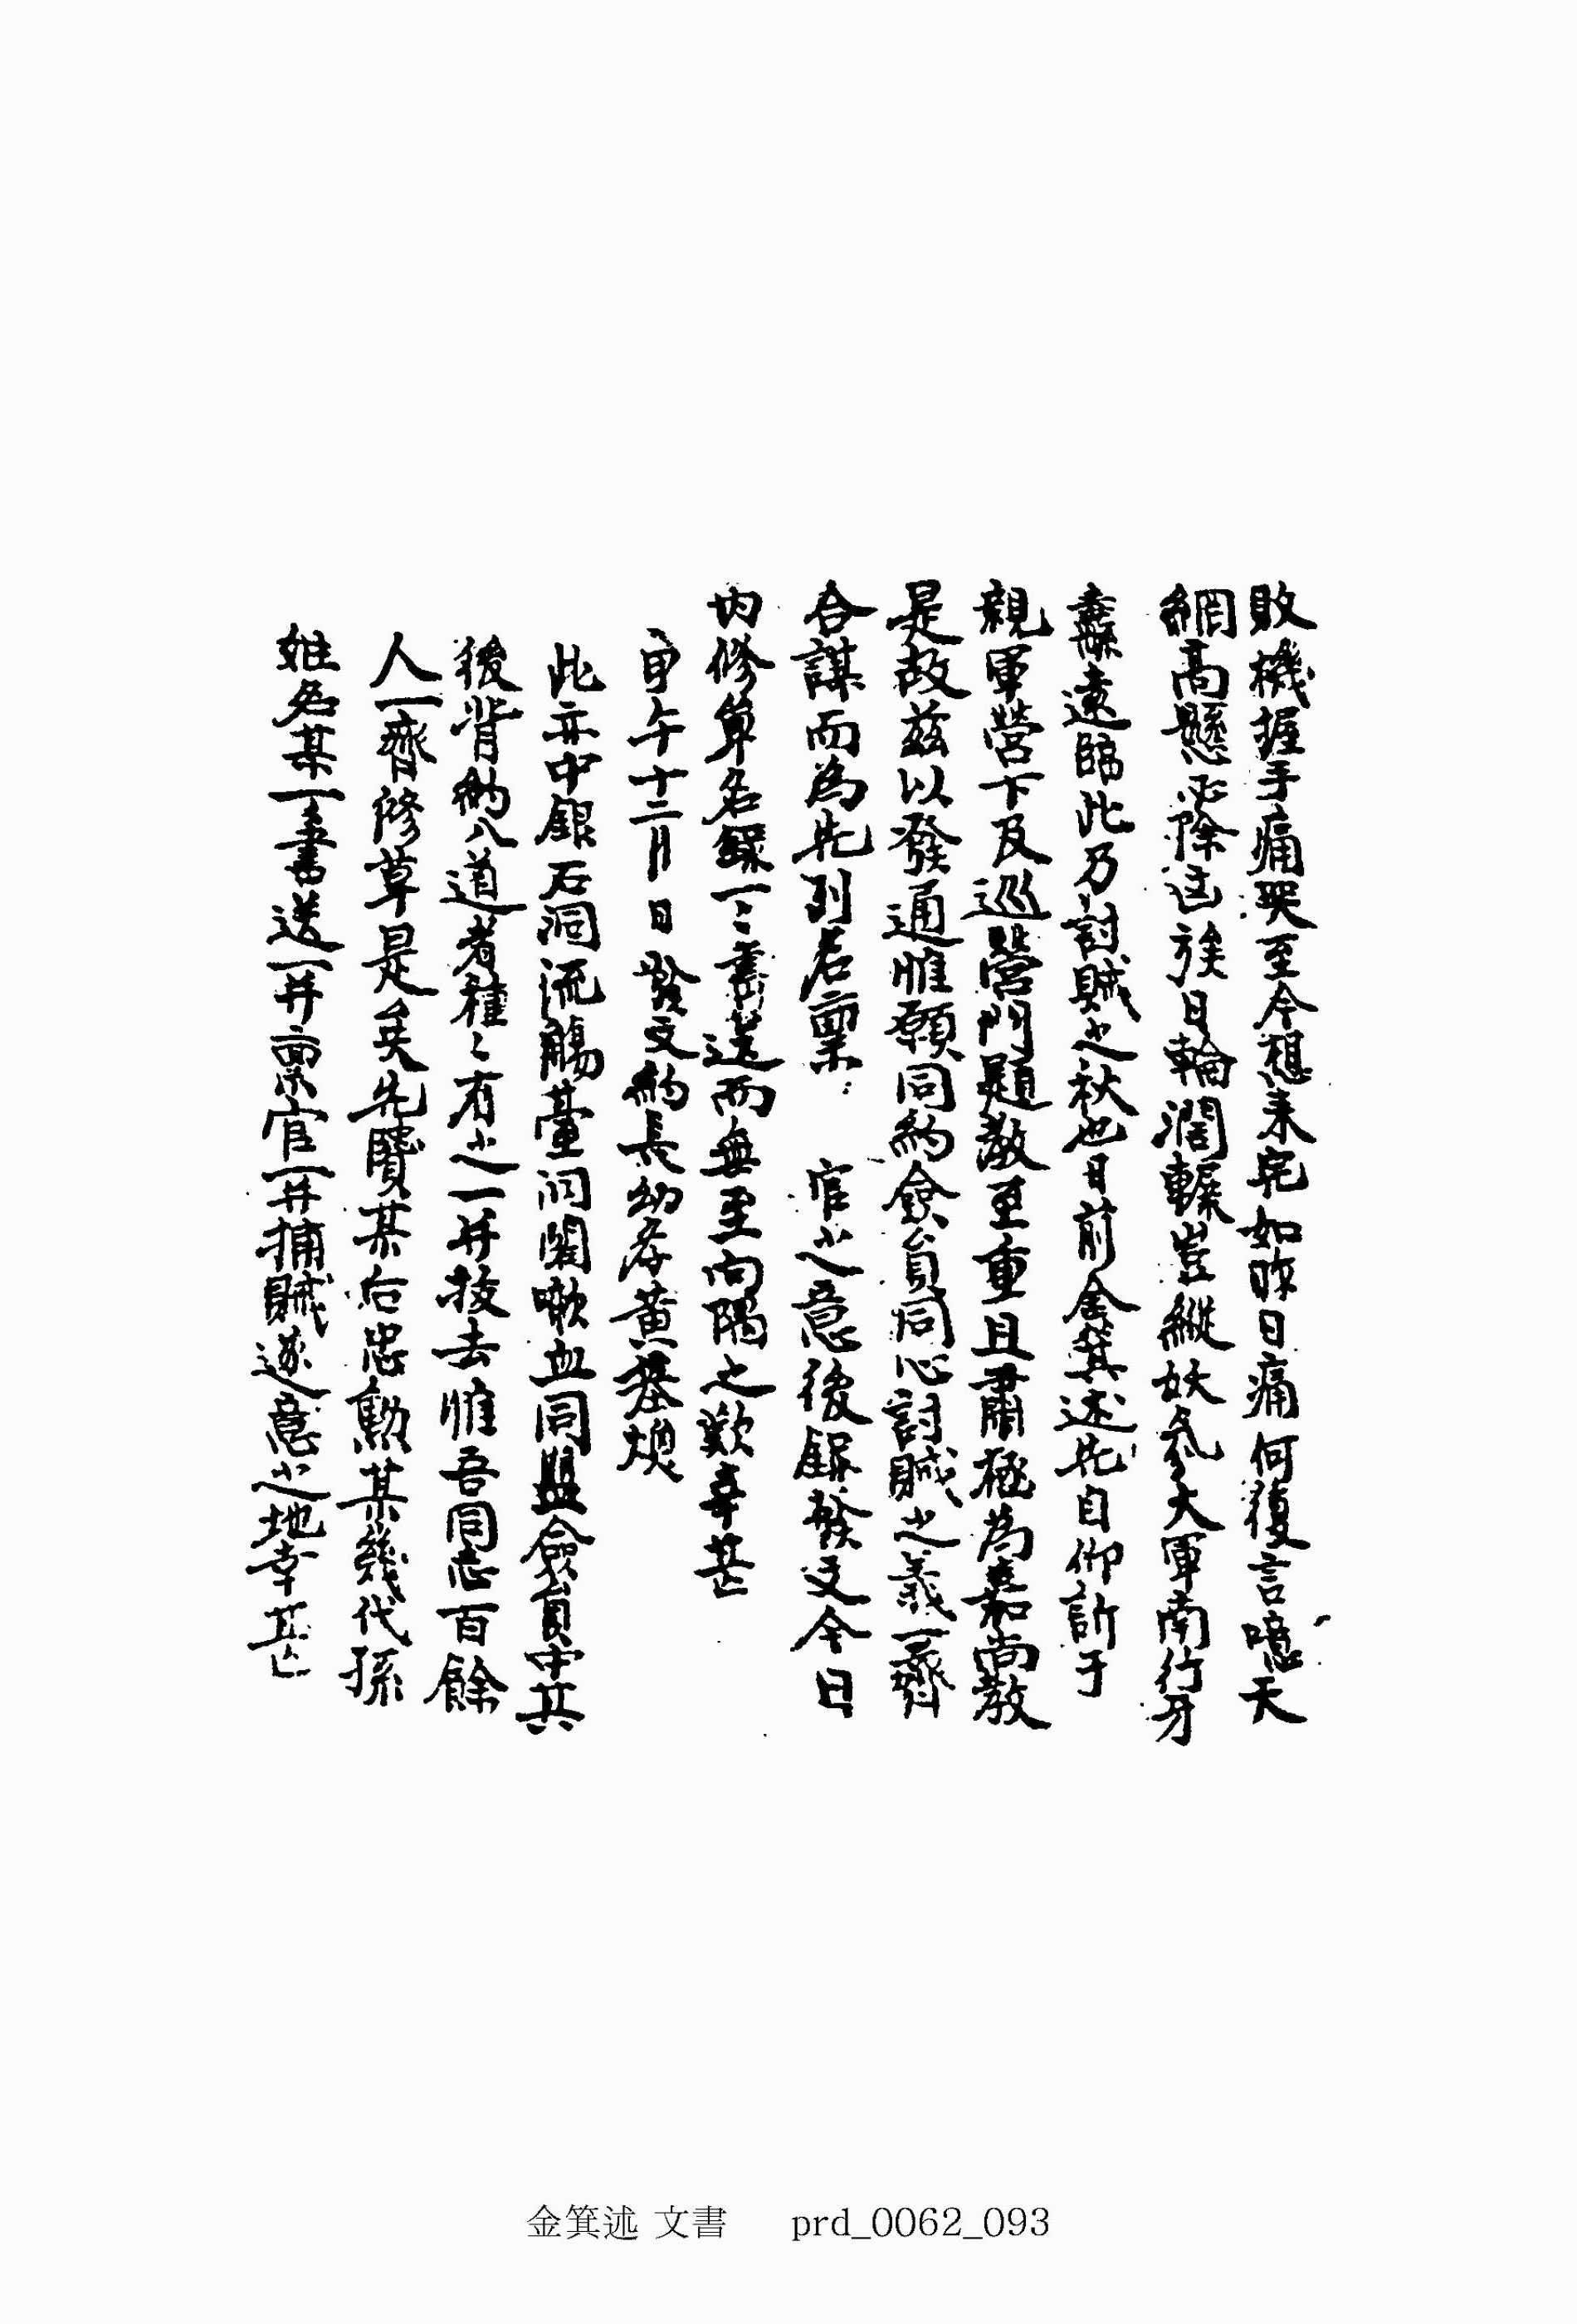 敗機握手痛哭至今想来宛如昨日痛何復言噫天
網高懸必除凶族日輪濶轢豈縱妖氛大軍南行牙
纛遠臨此乃討賊之秋也日前金箕述先自仰訴于
親軍營下及巡營門題敎至重且肅極為嘉尚敎
是故玆以發通惟願同約僉員同心討賊之義一齊
合謀而為先列名稟官之意後錄發文今日
內修單名錄一〻書送而無至向隅之歎幸甚
甲午十二月日發文約長幼孝黃基
此亦中銀石洞流觴臺洞閣嗽血同盟僉員中其
後背約入道者種〻有之一并拔去惟吾同志百餘
人一齊修草是矣先賢某后忠勳某幾代孫
姓名某一〻書送一并稟官一并捕賊遂意之地幸甚
金箕述 文書 prd_0062_093